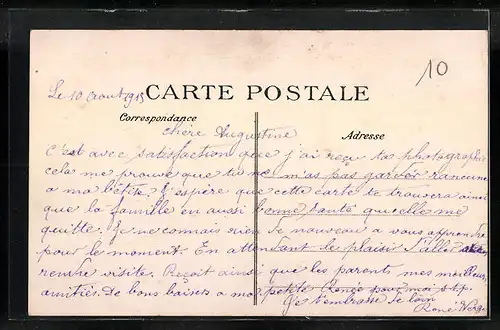 10
Le 10 Aout 1915
CARTE POSTALE
Correspondance
Adresse
Chère Augustine
C'est avec satisfaction que j'ai reçu ta photographie
cela me prouve que tu ne m'as pas garder rancune
a ma bétise. J'espère que cette carte te trouvera ainsi
que la famille en aussi bonne santé qu'elle me
quitte. Je ne connais rien de nouveau a vous apprendre
pour le moment. En attendant le plaisir d'aller
rendre visite. Reçoit ainsi que les parents mes meilleurs
amitiés. De bons baisers a ma petite Renée pour moi s t p.
Je t'embrasse de loin
René